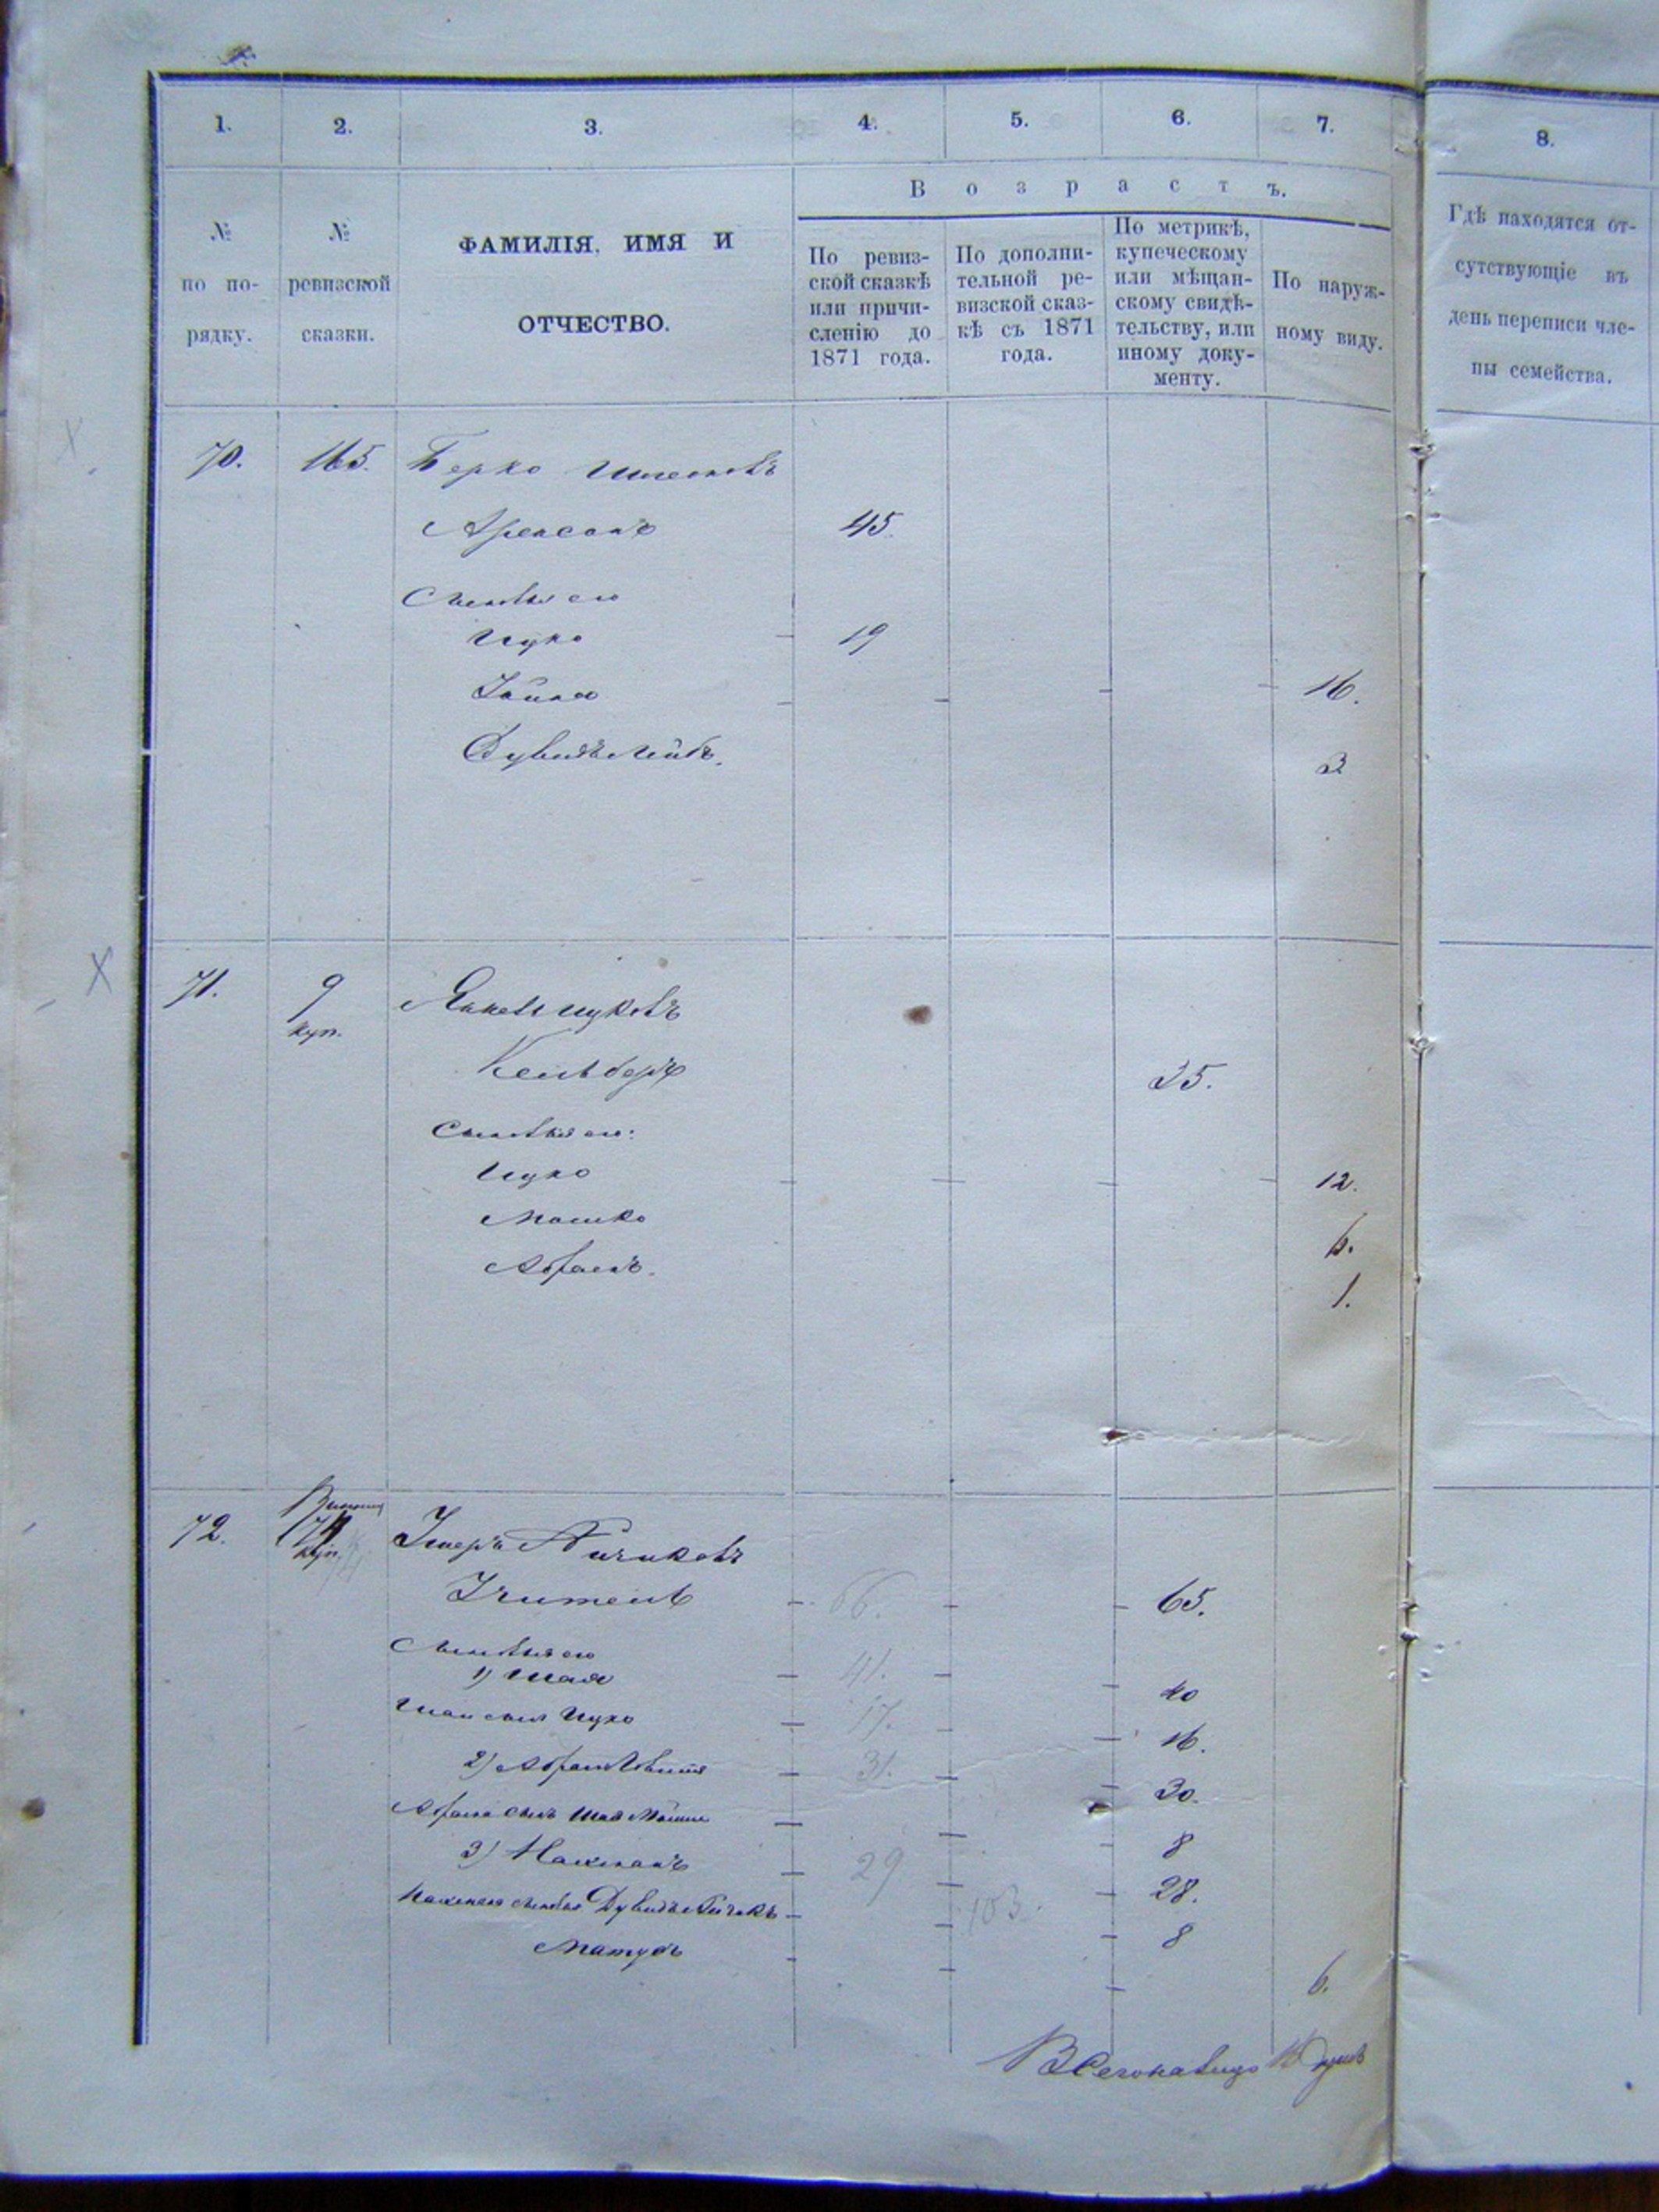 1. 2. 3. 4. 5. 6. 7. 8.
№ по порядку.
№ ревизской сказки.
ФАМИЛІЯ, ИМЯ И
ОТЧЕСТВО.
Возрастъ.
По ревиз-
ской сказкѣ
или причи-
сленію до
1871 года.
По дополни-
тельной ре-
визской сказ-
кѣ съ 1871
года.
По метрикѣ,
купеческому
или мѣщан-
скому свидѣ-
тельству, или
иному доку-
менту.
По наруж-
ному виду.
Гдѣ находятся от-
сутствующіе въ
день переписи чле-
ны семейства.
70. 165. Берко
Аренсонъ 45.
Сыновья его
Ицко 19
16.
Дувидъ Лейбъ. 3
71. 9 Янкель Ицковъ
куп.
Кельберъ 35.
Сыновья его:
Ицко 12.
Мошко 6.
Абрамъ. 1.
72. Айзиковъ
куп.
Учитель 66. 65.
Сыновья его
1) Шая 41. 40
Шаи сынъ Ицко 17. 16.
2) Абрамъ 31. 30.
Абрама сынъ 8
3) Нахманъ 29 28.
Нахмана сыновья Дувидъ Айзикъ 103. 8
Матусъ 6.
Всего на лицо душъ